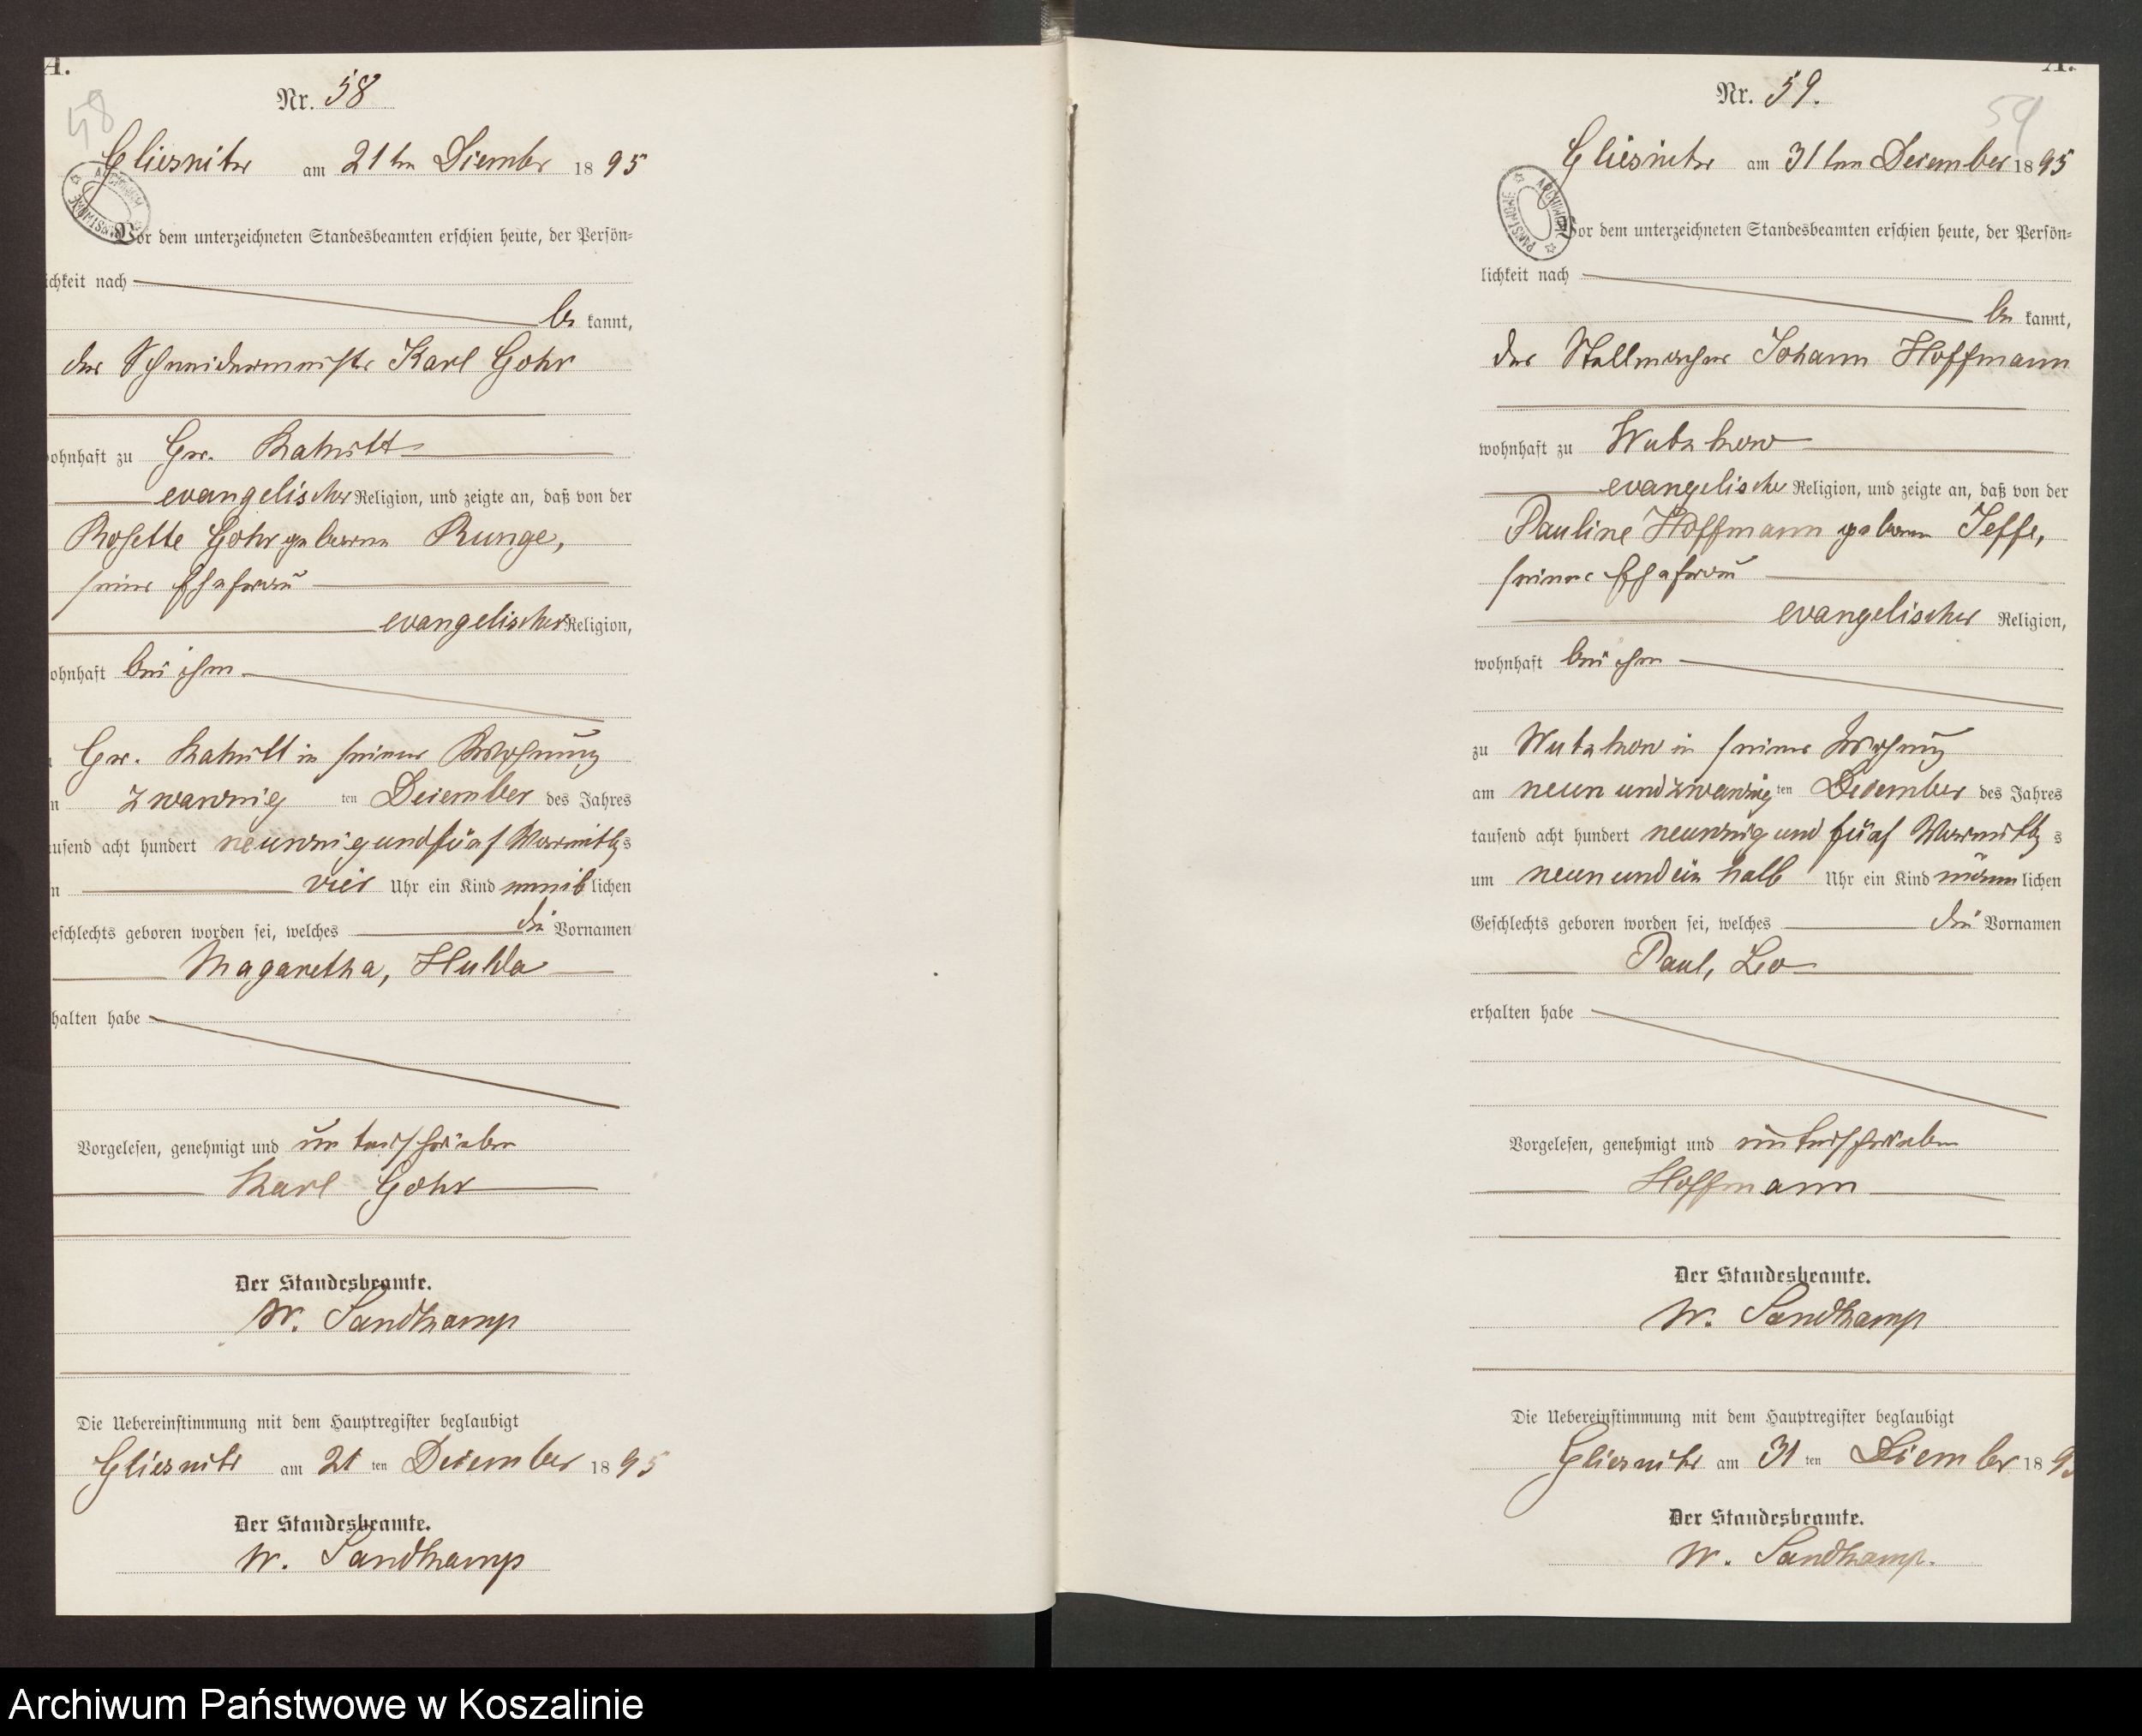 A.
58
Nr. 58
Gliesnitz am 21ten Dezember 1895
Vor dem unterzeichneten Standesbeamten erschien heute, der Persön-
ichkeit nach
be kannt,
der Schneidermeister Karl Gohr
ohnhaft zu Gr.
evangelischer Religion, und zeigte an, daß von der
Rosette Gohr geborene Runge,
seiner Ehefrau
evangelischer Religion,
ohnhaft bei ihm
Gr. in seiner Wohnung
n zwanzig ten Dezember des Jahres
usend acht hundert neunzig und fünf Vormittags
m vier Uhr ein Kind weiblichen
eschlechts geboren worden sei, welches die Vornamen
Magaretha, Hulda
halten habe
Vorgelesen, genehmigt und unterschrieben
Karl Gohr
Der Standesbeamte.
W. Sandkamp
Die Uebereinstimmung mit dem Hauptregister beglaubigt
Gliesnitz am 21 ten Dezember 1895
Der Standesbeamte.
W. Sandkamp
A.
59
Nr. 59.
Gliesnitz am 31ten Dezember 1895
Vor dem unterzeichneten Standesbeamten erschien heute, der Persön-
lichkeit nach
be kannt,
der Stellmacher Johann Hoffmann
wohnhaft zu Wutzkow
evangelischer Religion, und zeigte an, daß von der
Pauline Hoffmann geborene Jeffe,
seiner Ehefrau
evangelischer Religion,
wohnhaft bei ihm
zu Wutzkow in seiner Wohnung
am neun und zwanzig ten Dezember des Jahres
tausend acht hundert neunzig und fünf Vormittags
um neun und ein halb Uhr ein Kind männlichen
Geschlechts geboren worden sei, welches die Vornamen
Paul, Leo
erhalten habe
Vorgelesen, genehmigt und unterschrieben
Hoffmann
Der Standesbeamte.
W. Sandkamp
Die Uebereinstimmung mit dem Hauptregister beglaubigt
Gliesnitz am 31 ten Dezember 189
Der Standesbeamte.
W. Sandkamp.
Archiwum Państwowe w Koszalinie